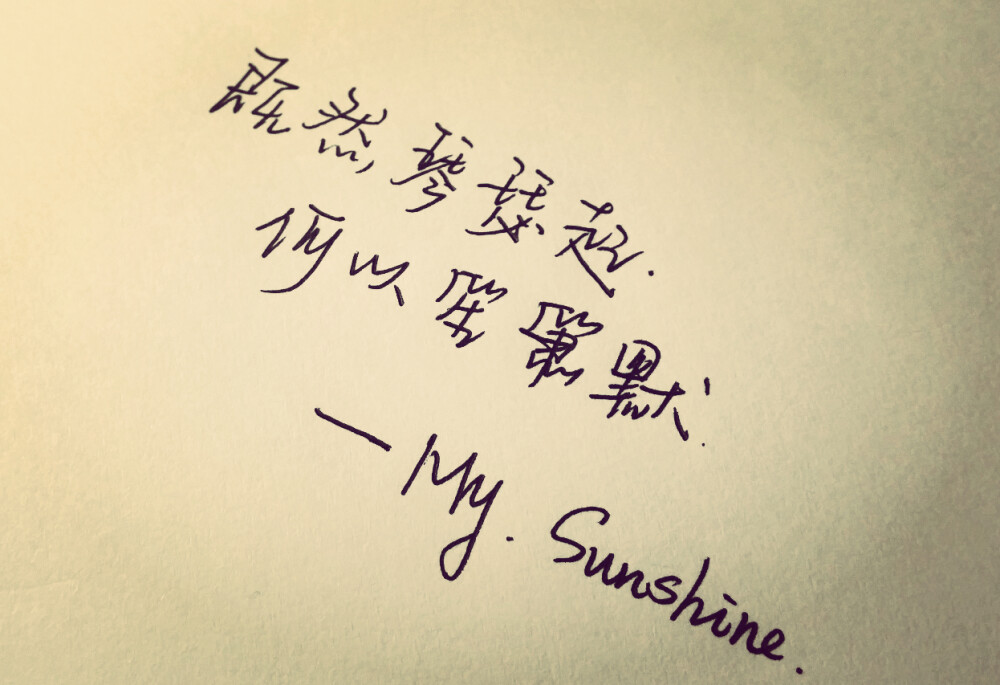 既然琴瑟起.
何以笙箫默.
—My. Sunshine.